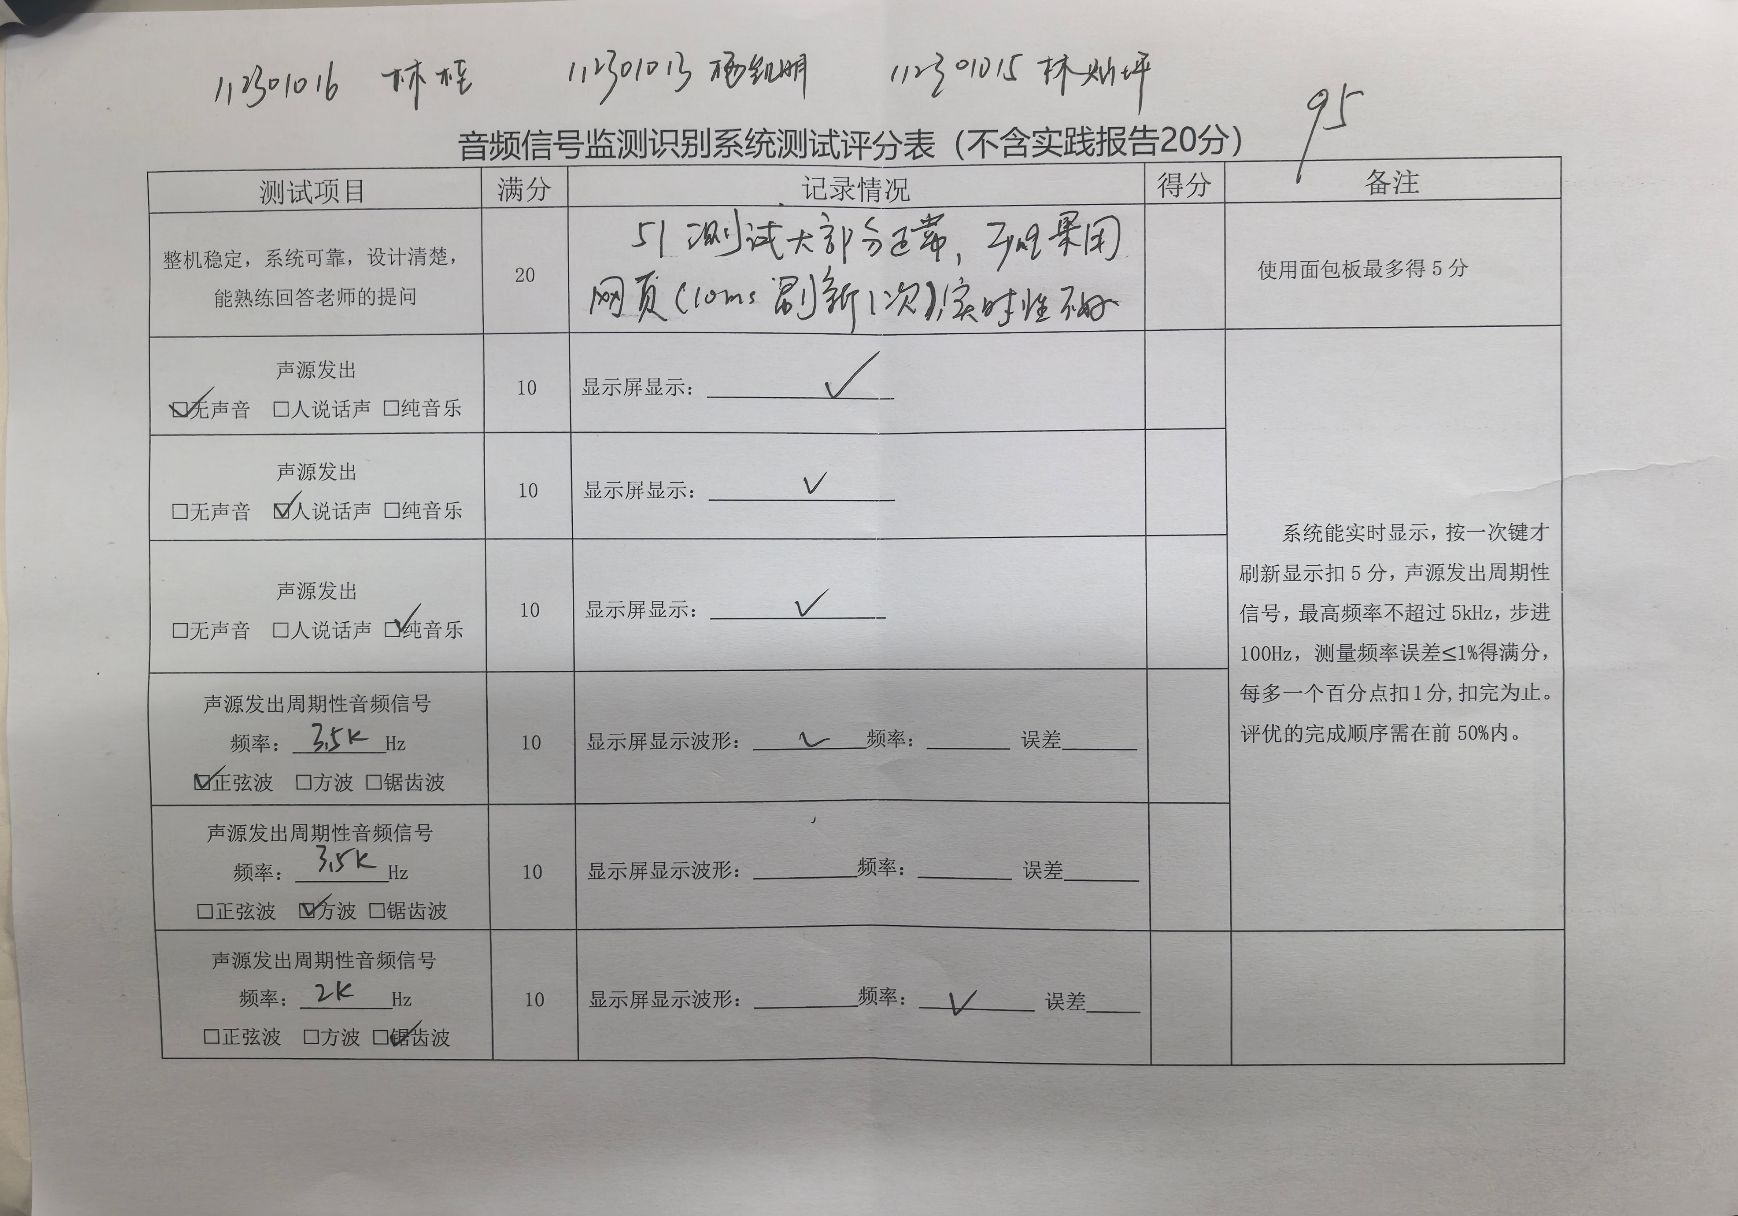 112301016 林桂 112301013 杨凯明 112301015 林灿坪
95
音频信号监测识别系统测试评分表（不含实践报告20分）
测试项目 满分 记录情况 得分 备注
整机稳定，系统可靠，设计清楚，
能熟练回答老师的提问
20
51测试大部分正常，
网页(10ms刷新1次),实时性不好
使用面包板最多得5分
声源发出
☑无声音 ☐人说话声 ☐纯音乐
10
显示屏显示：✓
声源发出
☐无声音 ☑人说话声 ☐纯音乐
10
显示屏显示：✓
声源发出
☐无声音 ☐人说话声 ☑纯音乐
10
显示屏显示：✓
系统能实时显示，按一次键才
刷新显示扣5分，声源发出周期性
信号，最高频率不超过5kHz，步进
100Hz，测量频率误差≤1%得满分，
每多一个百分点扣1分,扣完为止。
评优的完成顺序需在前50%内。
声源发出周期性音频信号
频率：3.5K Hz
☑正弦波 ☐方波 ☐锯齿波
10
显示屏显示波形：✓ 频率：____ 误差____
声源发出周期性音频信号
频率：3.5K Hz
☐正弦波 ☑方波 ☐锯齿波
10
显示屏显示波形：____ 频率：____ 误差____
声源发出周期性音频信号
频率：2K Hz
☐正弦波 ☐方波 ☑锯齿波
10
显示屏显示波形：____ 频率：✓ 误差____